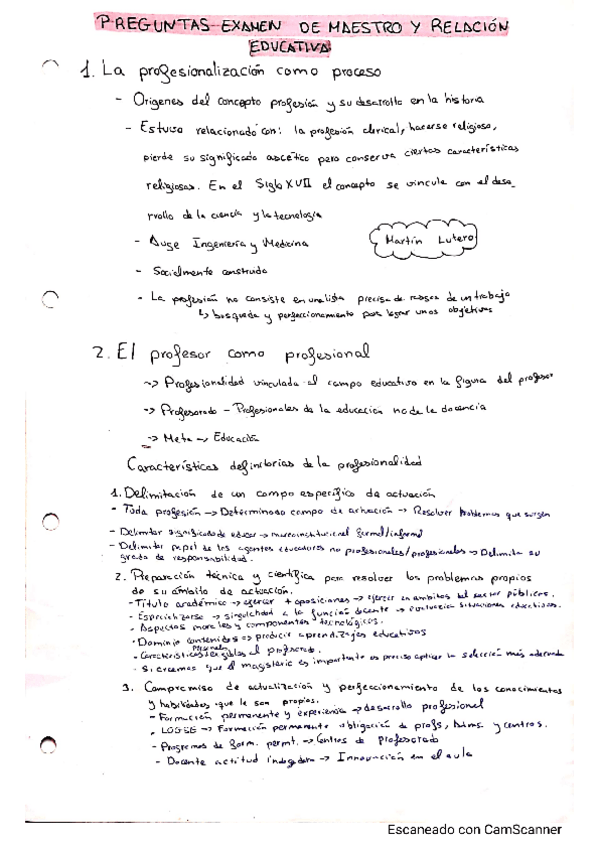 PREGUNTAS EXAMEN DE MAESTRO Y RELACIÓN
EDUCATIVA
1. La profesionalización como proceso
- Origenes del concepto profesión y su desarrollo en la historia
- Estuvo relacionado con: la profesión clerical, hacerse religioso,
pierde su significado ascético pero conserva ciertas características
religiosas. En el Siglo XVII el concepto se vincula con el desa_
rrollo de la ciencia y la tecnología
- Auge Ingeniería y Medicina
Martín Lutero
- Socialmente construida
- La profesión no consiste en una lista precisa de rasgos de un trabajo
↳ busqueda y perfeccionamiento para lograr unos objetivos
2. El profesor como profesional
~> Profesionalidad vinculada al campo educativo en la figura del profesor
~> Profesorado - Profesionales de la educación no de la docencia
~> Meta ~> Educación
Características definitorias de la profesionalidad
1. Delimitación de un campo específico de actuación
- Toda profesión -> Determinado campo de actuación -> Resolver problemas que surgen
- Delimitar significado de educar -> marco institucional formal/informal
- Delimitar papel de los agentes educadores no profesionales/profesionales -> Delimita su
grado de responsabilidad.
2. Preparación técnica y científica para resolver los problemas propios
de su ámbito de actuación.
- Título académico -> ejercer + oposiciones -> ejercer en ámbitos del sector públicos.
- Especializarse -> singularidad a la función docente -> evaluación situaciones educativas.
- Aspectos morales y componentes tecnológicos.
- Dominio contenidos => producir aprendizajes educativos
- Características personales exigibles al profesorado.
- Si creemos que el magisterio es importante es preciso aplicar la selección más adecuada
3. Compromiso de actualización y perfeccionamiento de los conocimientos
y habilidades que le son propios.
- Formación permanente y experiencia -> desarrollo profesional
- LOGSE -> Formación permanente obligación de profs, Adms. y centros.
- Programas de form. permt. -> Centros de profesorado
- Docente actitud indagadora -> Innovación en el aula
Escaneado con CamScanner